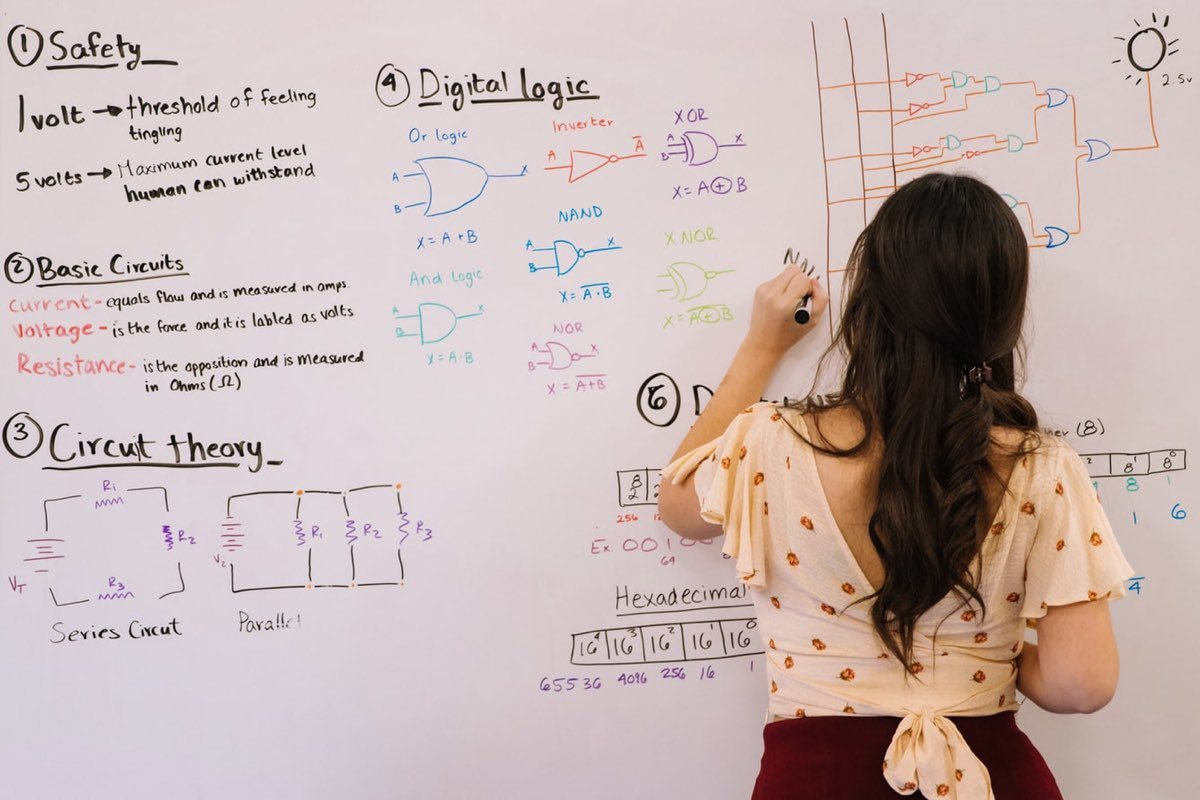 ① Safety_
1 volt → threshold of feeling
tingling
5 volts → Maximum current level
human can withstand
② Basic Circuits
Current - equals flow and is measured in amps.
Voltage - is the force and it is labled as volts
Resistance - is the opposition and is measured
in Ohms (Ω)
③ Circuit theory_
R1
R2
R3
VT
Series Circut
R1
R2
R3
V2
Parallel
④ Digital logic
Or logic
A
B
X
X = A + B
Inverter
A
A̅
XOR
A
B
X
X = A ⊕ B
And logic
A
B
X
X = A · B
NAND
A
B
X
X = A̅ ·̅ B̅
NOR
A
B
X
X = A̅ +̅ B̅
X NOR
X = A̅ ⊕̅ B̅
2.5v
(8)
8¹ 8⁰
8 1
1 6
4
256
Ex. 001
64
Hexadecimal
16⁴ 16³ 16² 16¹ 16⁰
65536 4096 256 16 1